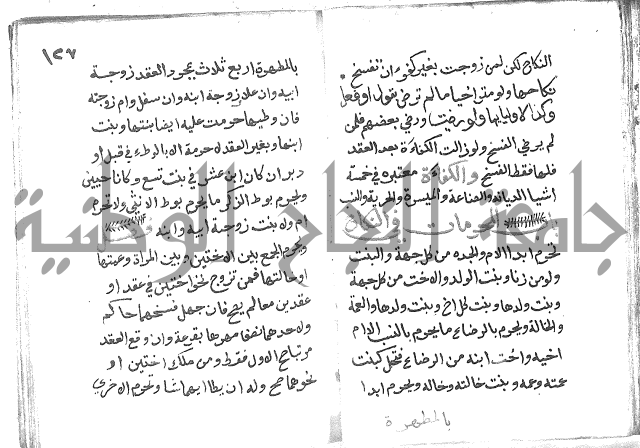 النكاح لكن لمن زوجت بغير كفو ان تفسخ
نكاحها ولو متراخيا ما لم ترض بقول او فعل
وكذا لاوليائها ولو رضيت ورضي بعضهم فلمن
لم يرض الفسخ ولو زالت الكفاءة بعد العقد
فلها فقط الفسخ والكفاءة معتبرة في خمسة
اشيا الديانة والصناعة والميسرة والحرية والنسب
باب المحرمات في النكاح
تحرم ابدا الام والجدة من كل جهة والبنت
ولو من زنا وبنت الولد والاخت من كل جهة
وبنت ولدها وبنت كل اخ وبنت ولدها والعمة
والخالة ويحرم بالرضاع ما يحرم بالنسب الا ام
اخيه واخت ابنه من الرضاع فتحل كبنت
عمته وعمه وبنت خالته وخاله ويحرم ابدا
بالمصهرة
١٣٧
بالمصهرة اربع ثلاث بمجرد العقد زوجة
ابيه وان علا وزوجة ابنه وان سفل وام زوجته
فان وطيها حرمت عليه ايضا بنتها وبنت
ابنها وبغير العقد لا حرمة الا بالوطء في قبل او
دبر ان كان ابن عشر في بنت تسع وكانا حيين
ويحرم بوطء الذكر ما يحرم بوطء الانثى ولا تحرم
ام ولا بنت زوجة ابيه وابنه
ويحرم الجمع بين الاختين وبين المراة وعمتها
او خالتها فمن تزوج نحو اختين في عقد او
عقدين معا لم يصح فان جهل فسخهما حاكم
ولاحدهما نصف مهرها بقرعة وان وقع العقد
مرتبا صح الاول فقط ومن ملك اختين او
نحوهما صح وله ان يطا ايهما شا وتحرم الاخرى
جامعة النجاح الوطنية